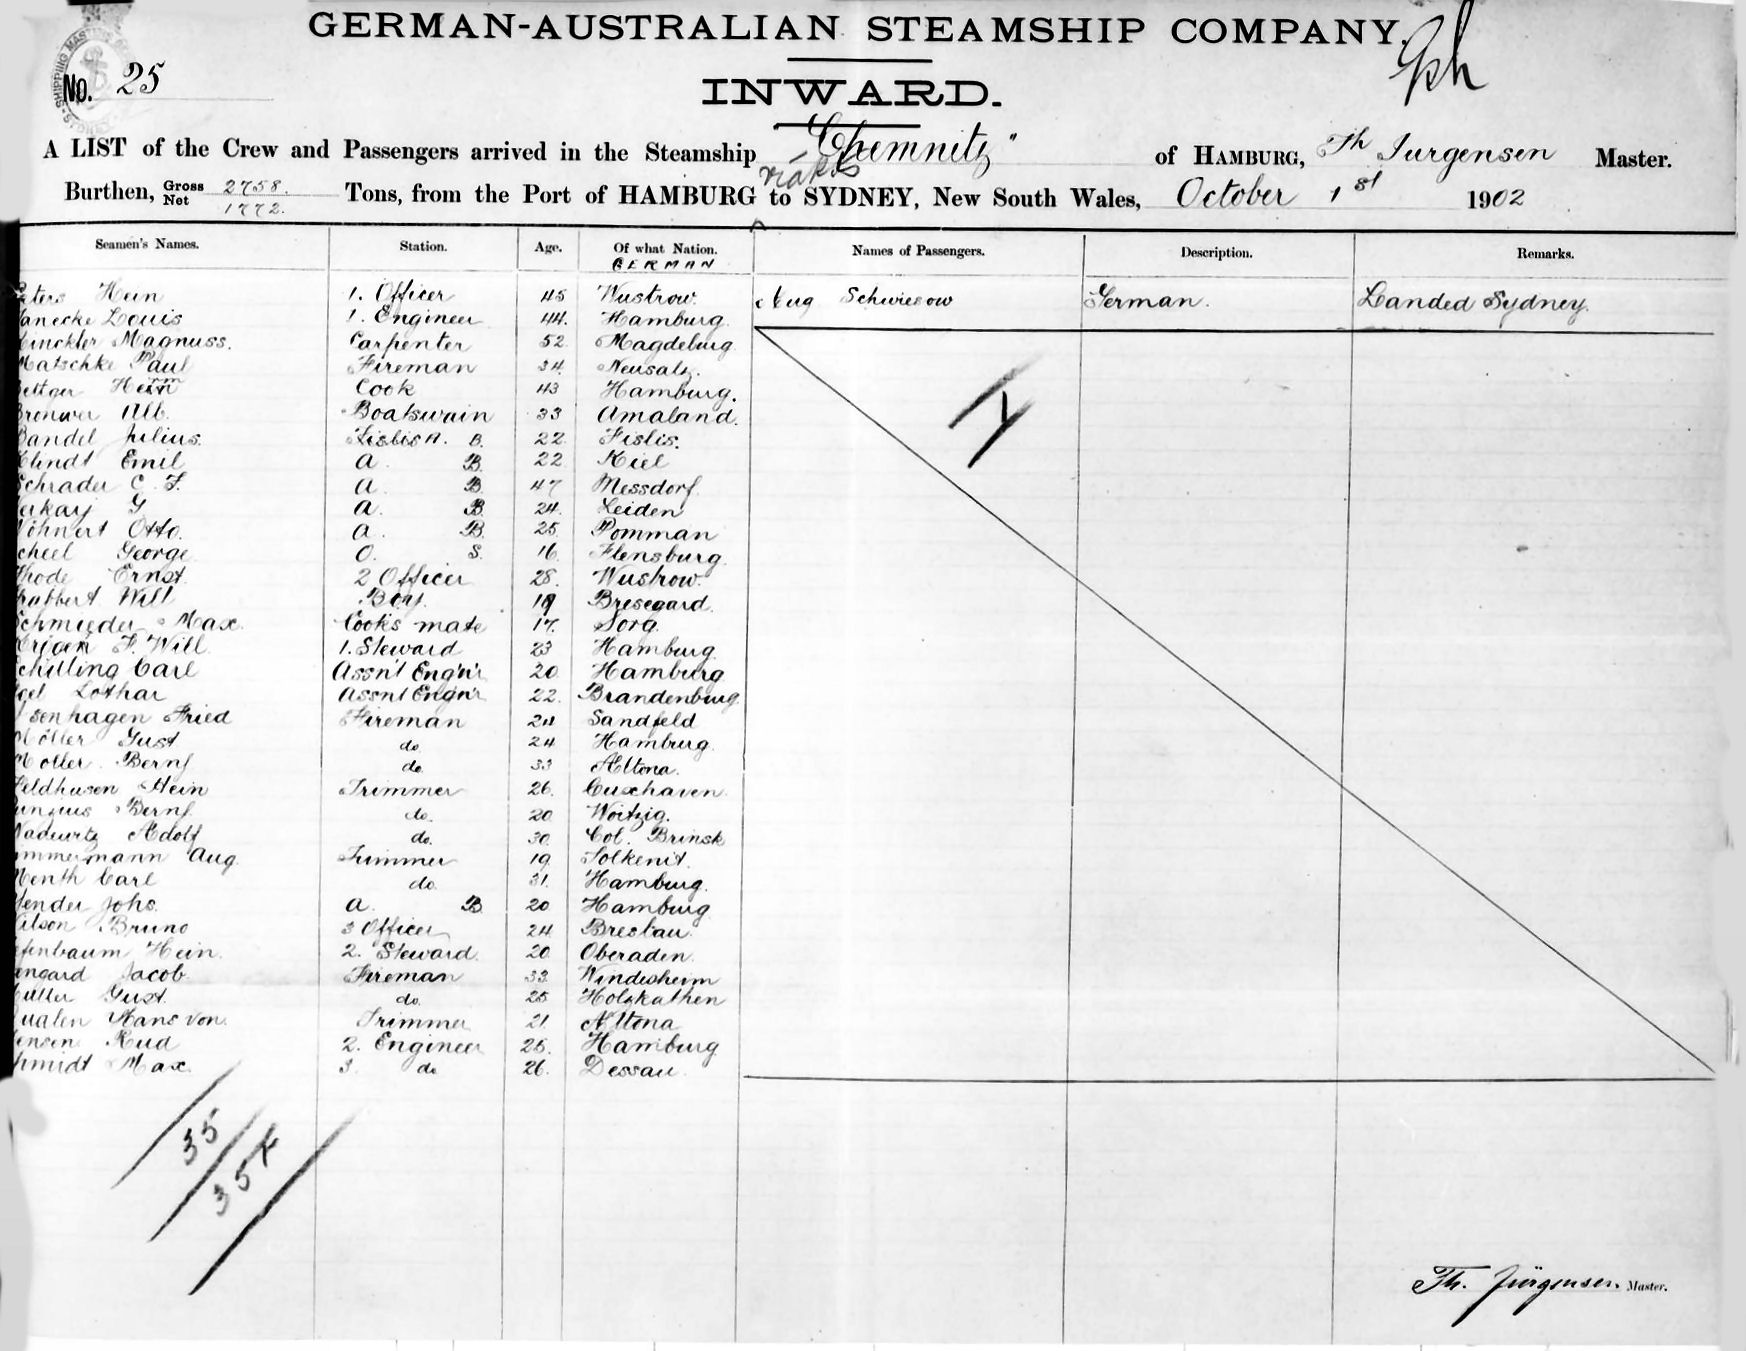 GERMAN-AUSTRALIAN STEAMSHIP COMPANY.
No. 25
INWARD.
A LIST of the Crew and Passengers arrived in the Steamship "Chemnitz" of HAMBURG, Th Jurgensen Master.
Burthen, Gross 2758. Net 1772. Tons, from the Port of HAMBURG to SYDNEY, New South Wales, October 1st 1902
Seamen's Names. Station. Age. Of what Nation. Names of Passengers. Description. Remarks.
GERMAN
Hein 1. Officer 45 Wustrow. Aug Schwiesow German. Landed Sydney.
Louis 1. Engineer 44. Hamburg.
Magnuss. Carpenter 52 Magdeburg
Matschke Paul Fireman 34 Neusalz.
Cook 43 Hamburg.
Alb. Boatswain 33 Amaland.
Bandel Julius. B. 22 Fislis.
Klindt Emil A. B. 22 Kiel
Schrader C. F. A B. 47 Messdorf
G A. B. 24. Leiden
Otto. A. B. 25 Pomman
George O. S. 16 Flensburg.
Ernst. 2 Officer 28. Wustrow.
Will Boy. Bresegard.
Schmieder Max. Cooks mate 17. Sorg.
F. Will. 1. Steward 23 Hamburg.
Schilling Carl Assn't Engn'r 20 Hamburg
Lothar Assnt Engn'r 22. Brandenburg.
senhagen Fried Fireman 24 Sandfeld
Möller Gust do. 24 Hamburg.
Moller Bernh do. 33 Altona.
Feldhusen Hein Trimmer 26. Cuxhaven.
Bernh. do. 20 Woitzig.
Adolf do. 30. Col. Brinsk
mmermann Aug. Trimmer 19. Solkenit.
Carl do. 31. Hamburg.
Johs. A. B 20 Hamburg
Bruno 3 Officer 24 Breslau.
efenbaum Hein. 2. Steward. 20 Oberaden.
Jacob. Fireman 33. Windesheim
Gust. do. 25 Holzkathen
ualen Hans von. Trimmer 21. Altona
ensen Rud 2. Engineer 25. Hamburg
hmidt Max. 3. do 26. Dessau.
35
35
Th. Jürgensen. Master.